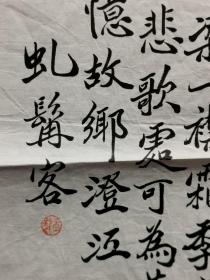 一襟霜季
悲歌處可為
憶故鄉澄江
虬髯客